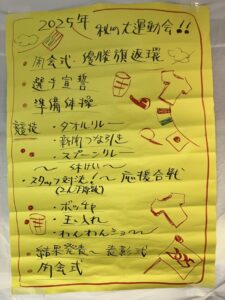 2025年 秋の大運動会!!
・開会式・優勝旗返還
・選手宣誓
・準備体操
競技
・タオルリレー
・新聞つな引き
・スプーンリレー
〜休けい〜
・スタッフ対決! 応援合戦
・ボッチャ
・玉入れ
・わんわんショー
・結果発表〜表彰式
・閉会式